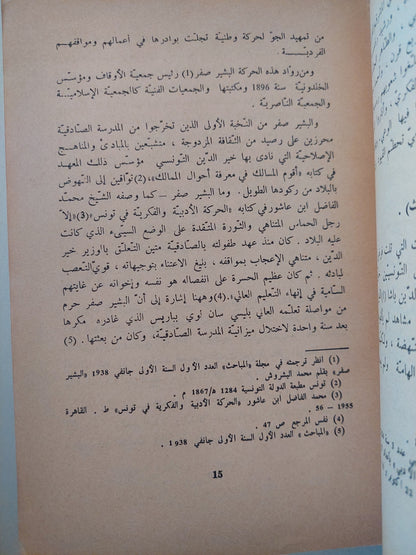 من تمهيد الجوّ لحركة وطنيّة تجلّت بوادرها في أعمالهم ومواقفهم
الفرديّـــة .
ومن روّاد هذه الحركة البشير صفر (1) رئيس جمعيّة الأوقاف ومؤسّس
الخلدونيّة سنة 1896 ومكتبتها والجمعيات الفنيّة كالجمعيّة الإسلاميّة
والجمعيّة الناصريّة .
والبشير صفر من النّخبة الأولى الذين تخرّجوا من المدرسة الصّادقيّة
محرزين على رصيد من الثّقافة المزدوجة ، متشبّعين بالمبادئ والمناهج
الإصلاحيّة التي نادى بها خير الدّين التّونسي مؤسّس ذلك المعهد
في كتابه «أقوم المسالك في معرفة أحوال الممالك»،(2) توّاقين إلى النّهوض
بالبلاد من ركودها الطّويل . وما البشير صفر ــ كما وصفه الشّيخ محمّد
الفاضل ابن عاشور في كتابه «الحركة الأدبيّة والفكريّة في تونس»(3)«إلاّ
رجل الحماس المتناهي والثّورة المتّقدة على الوضع السيّء الذي كانت
عليه البلاد . كان منذ عهد طفولته بالصّادقيّة متين التّعلّق بالوزير خير
الدّين ، متناهي الإعجاب بمواقفه ، بليغ الاعتناء بتوجيهاته ، قويّ التّعصب
لمبادئه . ثم كان عظيم الحسرة على انفصاله هو نفسه وإخوانه عن غايتهم
السّامية في إنهاء التّعليم العالي»،(4) وههنا إشارة إلى أنّ البشير صفر حرم
من مواصلة تعلّمه العالي بليسي سان لوي بباريس الذي غادره مكرها
بعد سنة واحدة لاختلال ميزانيّة المدرسة الصّادقيّة، وكان من بعثتها . (5)
(1) انظر ترجمته في مجلة «المباحث» العدد الأول السنة الأولى جانفي 1938 «البشير
صفر» بقلم محمد البشروش .
(2) تونس مطبعة الدولة التونسية 1284 هـ/1867 م .
(3) محمد الفاضل ابن عاشور «الحركة الأدبية والفكرية في تونس» ط . القاهرة
1955 – 56 .
(4) نفس المرجع ص 47 .
(5) «المباحث» العدد الأول السنة الأولى جانفي 1938 .
15